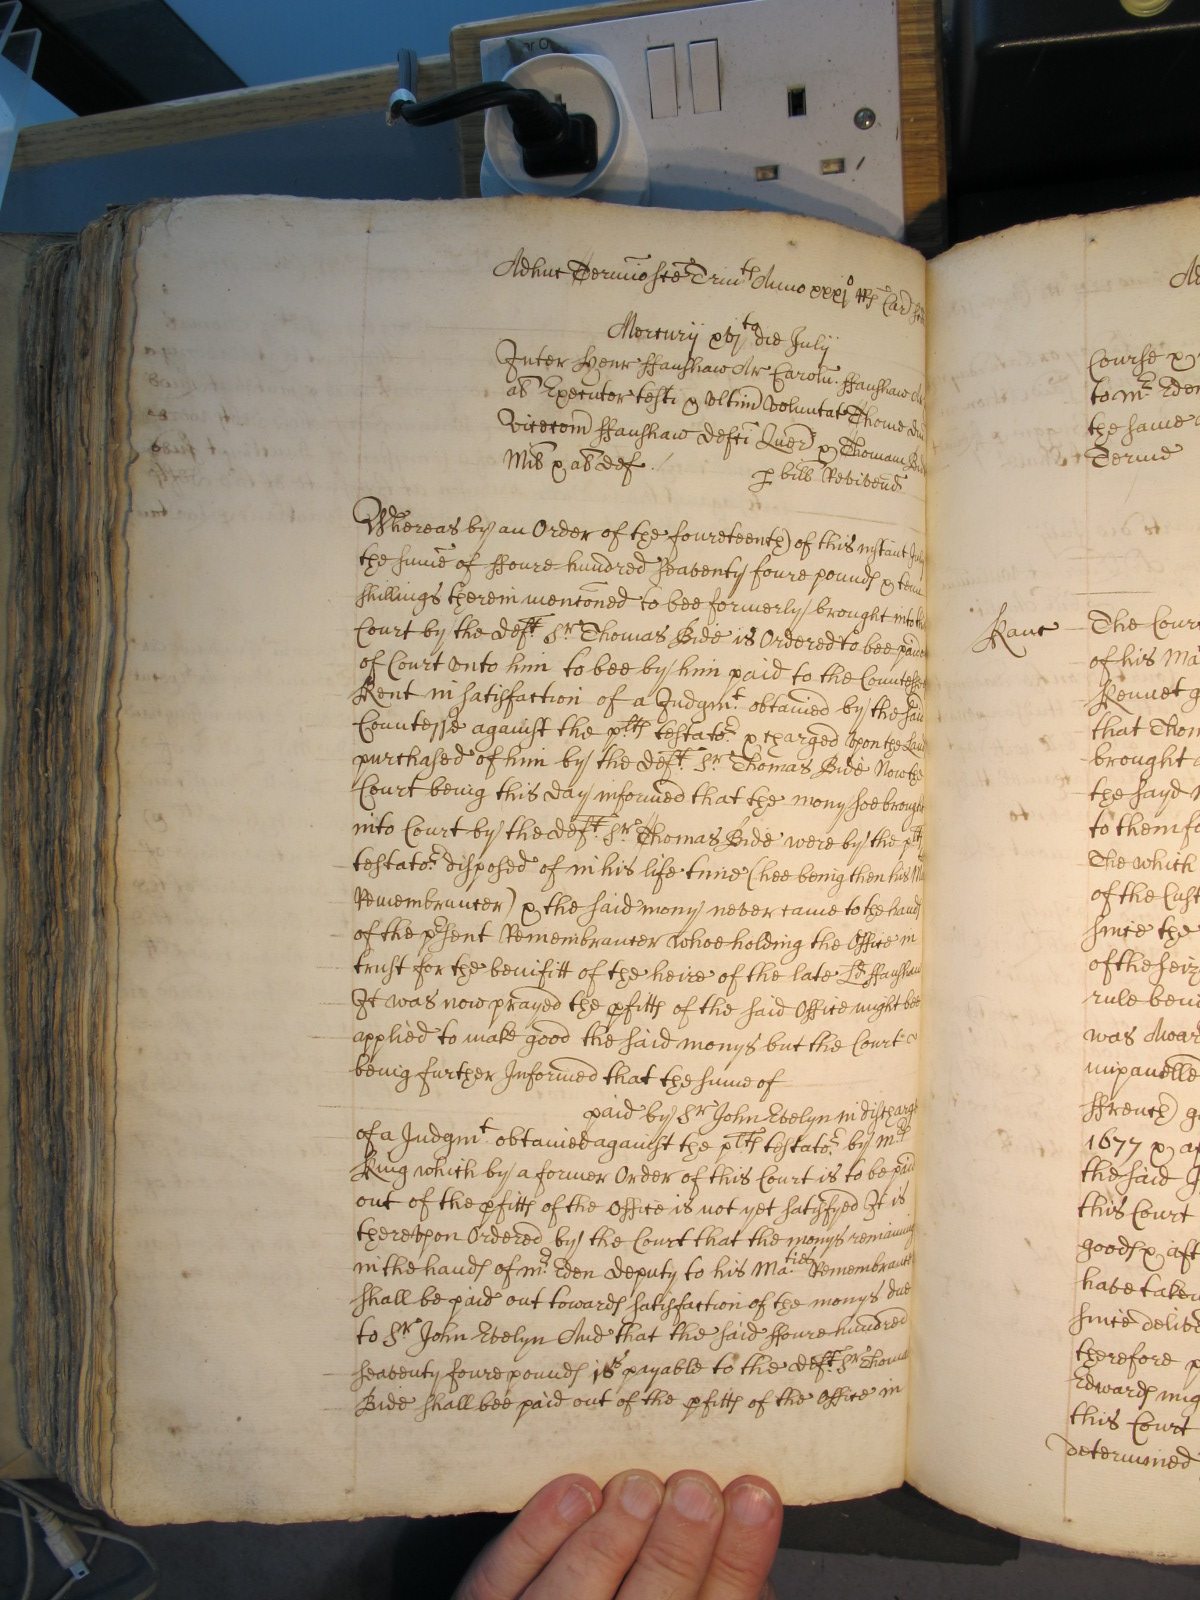 Adhuc Termio sce Trin<sup>tis</sup> Anno xxxj<sup>o</sup> Rs Car
Mercurij xvj<sup>to</sup> die July
Inter Henr ffanshaw Ar Carolu. ffanshaw
at Executor testi & ultim voluntat Thome
Vicecom ffanshaw defti Quer & Thomam
Mit & at def.
p bill Revivend
Whereas by an Order of the foureteenth of this instant July
the sume of ffoure hundred seaventy foure pounds & tenn
shillings therein mentoned to bee formerly brought into the
Court by the deft Sr Thomas Bide is Ordered to bee paid
of Court unto him to bee by him paid to the Countesse
Kent in satisfaction of a Judgmt obtained by the said
Countesse against the plts testator & charged upon the Land
purchased of him by the deft Sr Thomas Bide Now the
Court being this day informed that the mony soe brought
into Court by the deft Sr Thomas Bide were by the plts
testator disposed of in his life time (hee being then his
Remembrancer) & the said mony never came to the hands
of the psent Remembrancer whoe holding the Office in
trust for the benifitt of the heire of the late Ld ffanshaw
It was now prayed the pfitts of the said Office might bee
applied to make good the said monys but the Court
being further Informed that the sume of
paid by Sr John Evelyn in discharge
of a Judgmt obtained against the plts testator by
King which by a former Order of this Court is to be paid
out of the pfitts of the Office is not yet satisfyed It is
thereupon Ordered by the Court that the monys remaining
in the hands of mr Eden deputy to his Maties Remembrancer
shall be paid out towards satisfaction of the monys due
to Sr John Evelyn And that the said ffoure hundred
seaventy foure pounds 10s payable to the deft Sr Thomas
Bide shall bee paid out of the pfitts of the Office in
Course &
to mr Eden
the same
Terme
Kanc
The Court
of his Ma
Kennet
that Thom
brought
the sayd
to them fo
The which
of the Cust
since the
of the seiz
rule bein
was Awar
impanelle
ffrench)
1677 & af
the said
this Court
goods & aft
have taken
since deliv
therefore
Edwards mig
this Court
determined